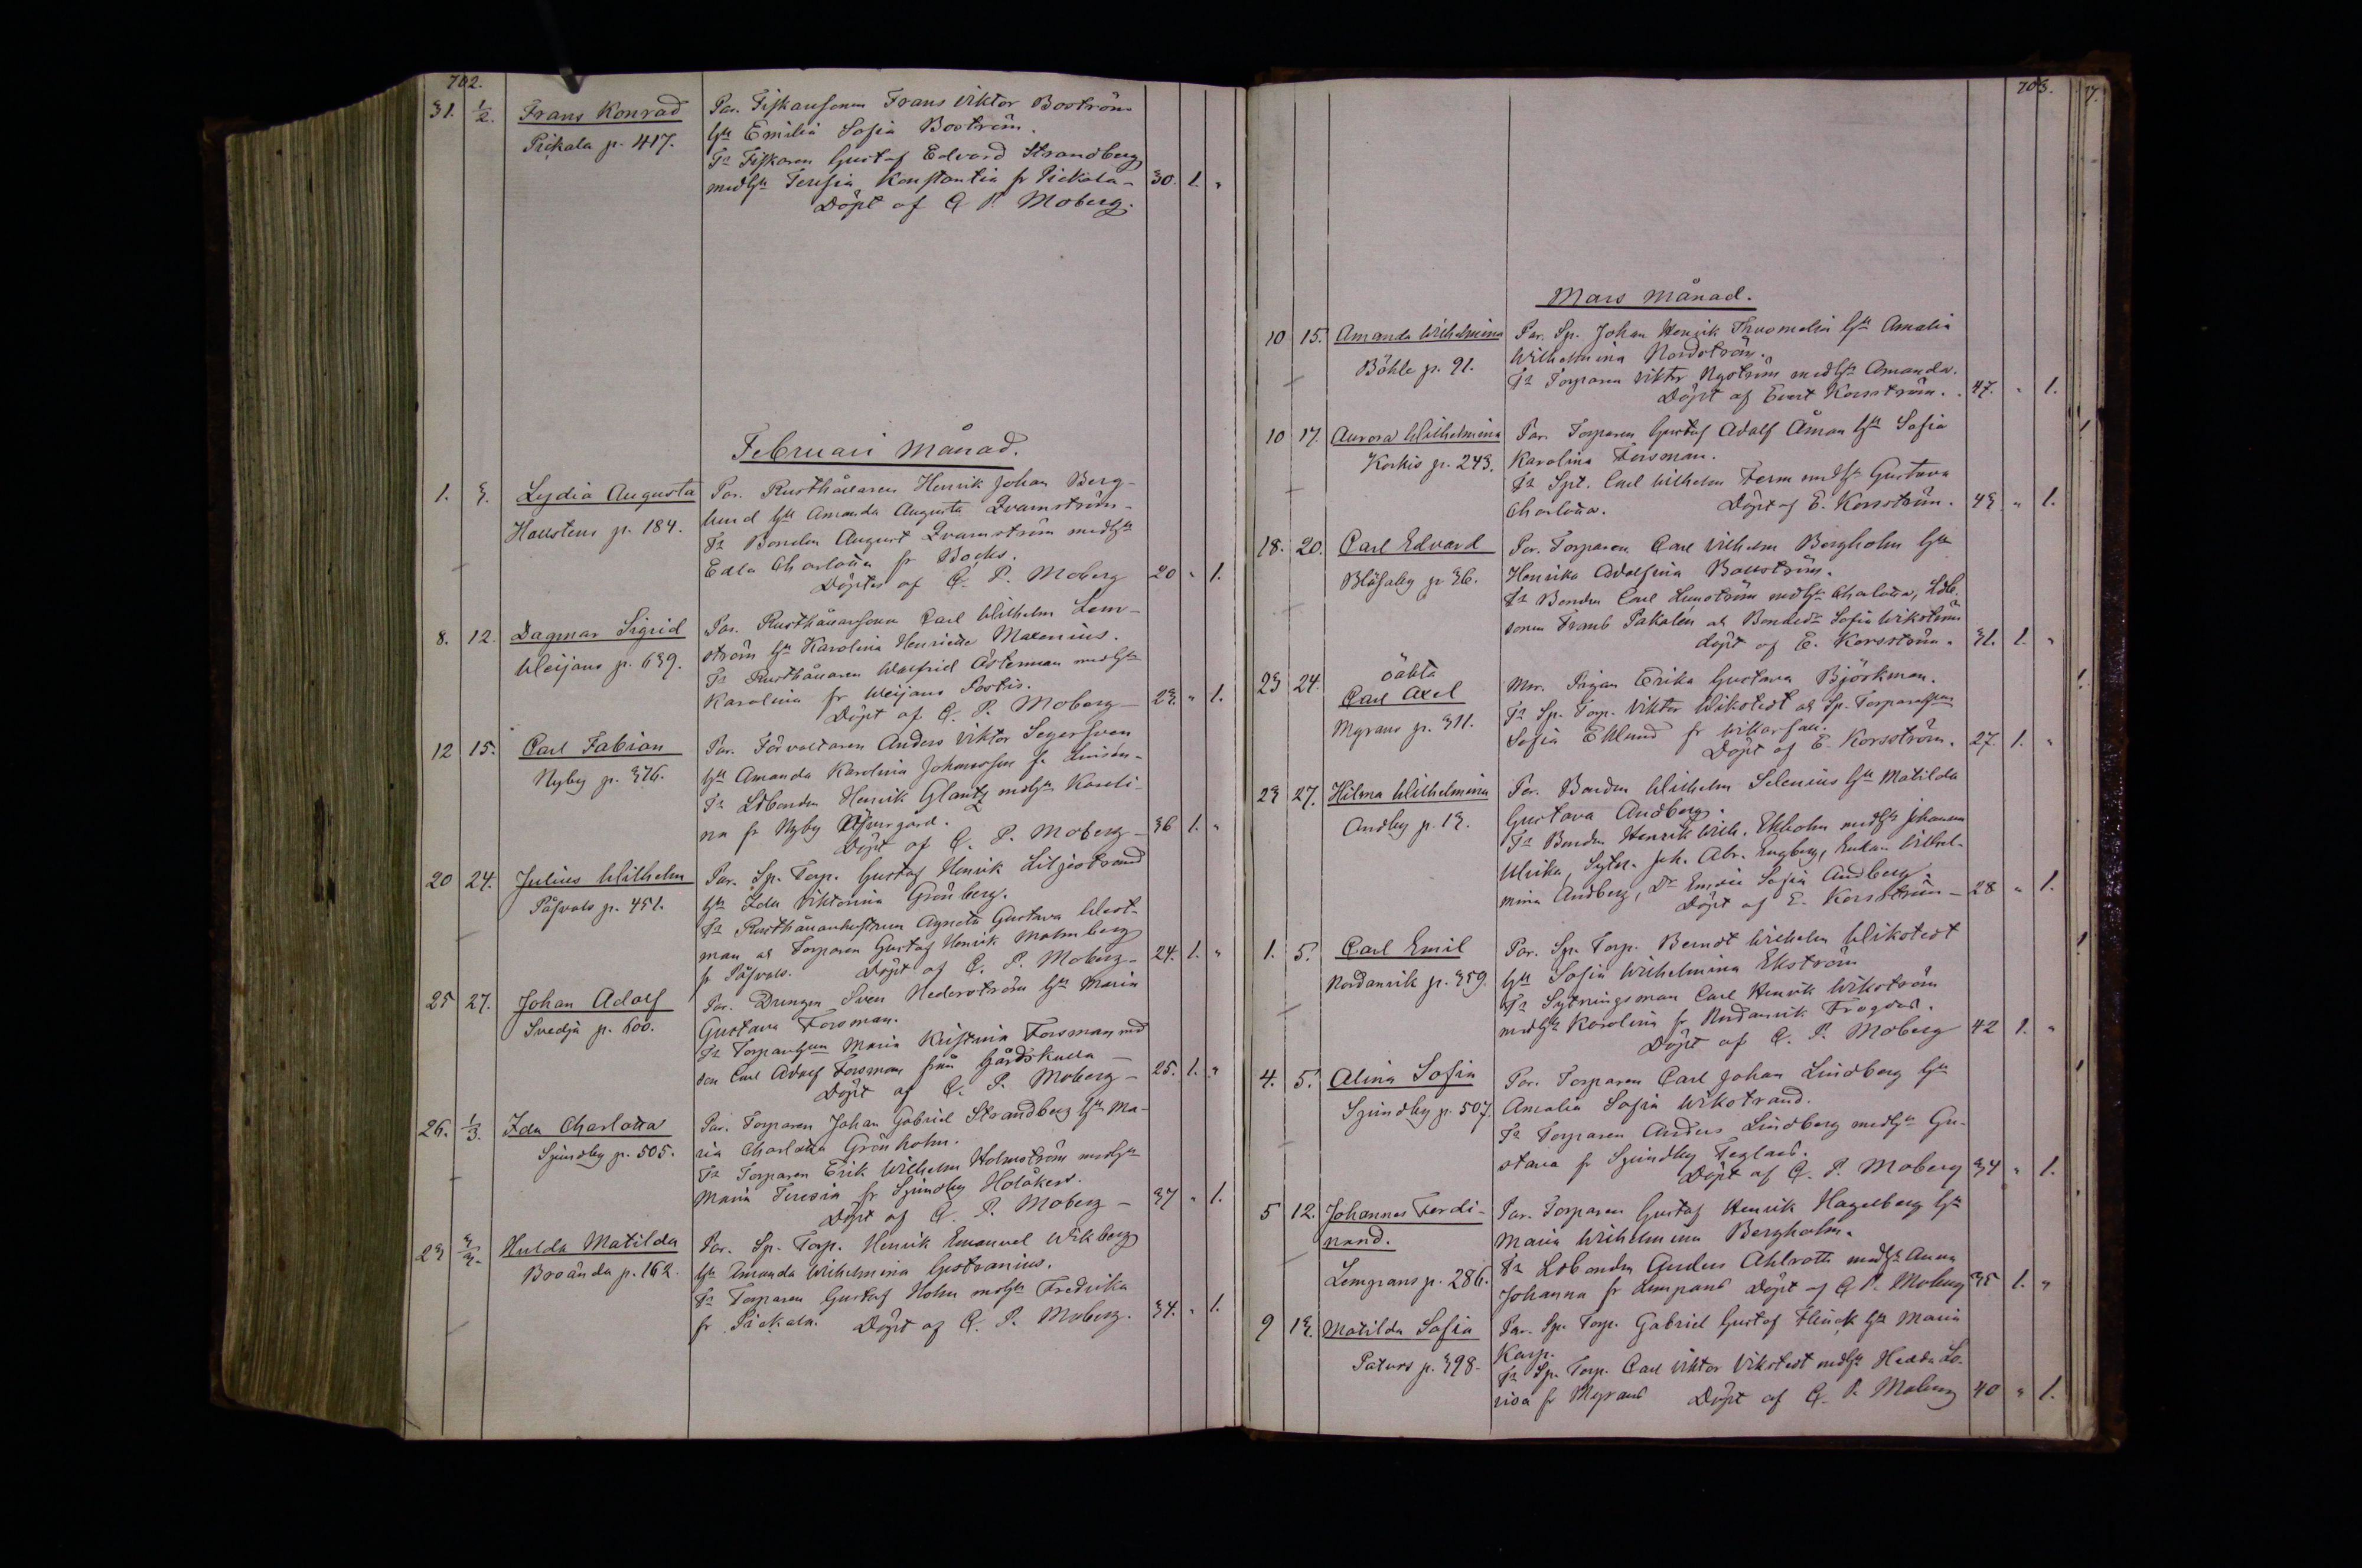 702.
31. 1/2. Frans Konrad Par. Fiskaresonen Frans Viktor Boström
Pickala p. 417. hu Emilia Sofia Boström.
Fr Fiskaren Gustaf Edvard Strandberg
medhu Teresia Konstantia fr Pickala - 30. 1. "
Döpt af C. P. Moberg.
Februari Månad.
1. 3. Lydia Augusta Par. Rusthållaren Henrik Johan Berg-
Hollstens p. 184. lund hu Amanda Augusta Qvarnström-
Fr Bonden August Qvarnström medhu
Edla Charlotta fr Bocks.
Döptes af C. P. Moberg 20 " 1.
8. 12. Dagmar Sigrid Par. Rusthållaresonen Carl Wilhelm Lem-
Weijans p. 639. ström hu Karolina Henriette Malenius.
Fr Rusthållaren Walfrid Österman medhu
Karolina fr Weijans Sortis.
Döpt af C. P. Moberg - 23. " 1.
12 15. Carl Fabian Par. Förvaltaren Anders Viktor Segersven
Nyby p. 376. hu Amanda Karolina Johansson f.
Fr Ldbonden Henrik Glantz medhu Karoli-
na fr Nyby
Döpt af C. P. Moberg - 36 1. "
20 24. Julius Wilhelm Par. Sp. Torp. Gustaf Henrik Liljestrand
Påfvals p. 451. hu Ida Viktorina Grönberg.
Fr Rusthållarehustrun Agneta Gustava West-
man ch Torparen Gustaf Henrik Malmberg
fr Påfvals. Döpt af C. P. Moberg - 24. 1. "
25 27. Johan Adolf Par. Drengen Sven Nederström hu Maria
Svedja p. 600. Gustava Forsman.
Fr Torparehun Maria Kristina Forsman, md
son Carl Adolf Forsman från Gårdskulla -
Döpt af C. P. Moberg - 25. 1. "
26. 1/3. Ida Charlotta Par. Torparen Johan Gabriel Strandberg hu Ma-
Sjundby p. 505. ria Charlotta Grönholm.
Fr Torparen Erik Wilhelm Holmström medhu
Maria Teresia fr Sjundby Holåkers.
Döpt af C. P. Moberg - 37 " 1.
23 3/3. Hulda Matilda Par. Sp. Torp. Henrik Emanuel Wikberg
Broända p. 162. hu Amanda Wilhelmina Gestranius.
Fr Torparen Gustaf Holm medhu Fredrika
fr Pickala. Döpt af C. P. Moberg. 34. " 1.
703.
Mars Månad.
10 15. Amanda Wilhelmina Par. Sp. Johan Henrik Thuomelin hu Amalia
Böhle p. 91. Wilhelmina Nordström.
Fr Torparen Viktor Nyström medhu Amanda.
Döpt af Evert Korsström. 47. " 1.
10 17. Aurora Wilhelmina Par. Torparen Gustaf Adolf Åman hu Sofia
Korkis p. 243. Karolina Forsman.
Fr Spt. Carl Wilhelm Ferm medhu Gustava
Charlotta. Döpt af E. Korsström. 43 " 1.
18. 20. Carl Edvard Par. Torparen Carl Wilhelm Bergholm hu
Blåfaby p 36. Henrika Adolfina Bollström.
Fr Bonden Carl Lunström medhu Charlotta, Ldb.
sonen Frans Pakalén ch Bondedr Sofia Wikström
döpt af E. Korsström. 31. 1. "
23 24. oäkta
Carl Axel Mor. Pigan Erika Gustava Björkman.
Myrans p. 311. Fr Sp. Torp. Viktor Wikstedt ch Sp. Torparehun
Sofia Eklund fr Wikarskall.
Döpt af E. Korsström. 27. 1. "
23 27. Hilma Wilhelmina Par. Bonden Wilhelm Selenius hu Matilda
Andby p. 13. Gustava Andberg.
Fr Bonden Henrik Wilh. Ekholm medhu Johanna
Ulrika, Sytn. Joh. Abr. Engberg, Enkan Wilhel-
mina Andberg, Dr Emelie Sofia Andberg.
Döpt af E. Korsström - 28 " 1.
1. 5. Carl Emil Par. Sp. Torp. Berndt Wilhelm Wikstedt
Nordanvik p. 359. hu Sofia Wilhelmina Ekström
Fr Sytningsman Carl Henrik Wikström
medhu Karolina fr Nordanvik Frogdas.
Döpt af C. P. Moberg 42 1. "
4. 5. Alina Sofia Par. Torparen Carl Johan Lindberg hu
Sjundby p. 507. Amalia Sofia Wikstrand.
Fr Torparen Anders Lindberg medhu Gu-
stava fr Sjundby Teglas.
Döpt af C. P. Moberg 34 " 1.
5 12. Johannes Ferdi- Par. Torparen Gustaf Henrik Hagelberg hu
nand. Maria Wilhelmina Bergholm.
Fr Ldbonden Anders Ahlroth medhu Anna
Lempans p. 286. Johanna fr Lempans Döpt af C P. Moberg 35 1. "
9 13. Matilda Sofia Par. Sp. Torp. Gabriel Gustaf Flinck hu Maria
Paturs p. 398. Karp.
Fr Sp. Torp. Carl Viktor Vikstedt medhu Hedda Lo-
visa fr Myrans Döpt af C. P. Moberg 40 " 1.